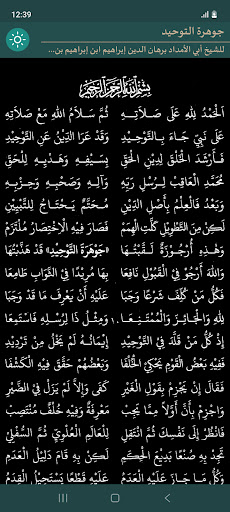 12:39
جوهرة التوحيد
للشيخ أبي الأمداد برهان الدين إبراهيم ابن إبراهيم بن...
بِسْمِ اللَّهِ الرَّحْمَنِ الرَّحِيمِ
الحَمْدُ لِلهِ عَلَى صِلَاتِهِ ثُمَّ سَلَامُ اللهِ مَعْ صَلَاتِهِ
عَلَى نَبِيٍّ جَاءَ بِالتَّوْحِيدِ وَقَدْ عَرَا الدِّينُ عَنِ التَّوْحِيدِ
فَأَرْشَدَ الخَلْقَ لِدِينِ الحَقِّ بِسَيْفِهِ وَهَدْيِهِ لِلْحَقِّ
مُحَمَّدِ العَاقِبْ لِرُسْلِ رَبِّهِ وَآلِهِ وَصَحْبِهِ وَحِزْبِهِ
وَبَعْدُ فَالعِلْمُ بِأَصْلِ الدِّينِ مُحَتَّمٌ يَحْتَاجُ لِلتَّبْيِينِ
لَكِنْ مِنَ التَّطْوِيلِ كَلَّتِ الهِمَمْ فَصَارَ فِيهِ الِاخْتِصَارُ مُلْتَزَمْ
وَهَذِهِ أُرْجُوزَةٌ لَقَّبْتُهَا «جَوْهَرَةَ التَّوْحِيدِ» قَدْ هَذَّبْتُهَا
وَاللهَ أَرْجُو فِي القَبُولِ نَافِعَا بِهَا مُرِيدًا فِي الثَّوَابِ طَامِعَا
فَكُلُّ مَنْ كُلِّفَ شَرْعًا وَجَبَا عَلَيْهِ أَنْ يَعْرِفَ مَا قَدْ وَجَبَا
لِلهِ وَالجَائِزَ وَالمُمْتَنِعَا ١٠ وَمِثْلَ ذَا لِرُسْلِهِ فَاسْتَمِعَا
إِذْ كُلُّ مَنْ قَلَّدَ فِي التَّوْحِيدِ إِيمَانُهُ لَمْ يَخْلُ مِنْ تَرْدِيدِ
فَفِيهِ بَعْضُ القَوْمِ يَحْكِي الخُلْفَا وَبَعْضُهُمْ حَقَّقَ فِيهِ الكَشْفَا
فَقَالَ إِنْ يَجْزِمْ بِقَوْلِ الغَيْرِ كَفَى وَإِلَّا لَمْ يَزَلْ فِي الضَّيْرِ
وَاجْزِمْ بِأَنَّ أَوَّلًا مِمَّا يَجِبْ مَعْرِفَةٌ وَفِيهِ خُلْفٌ مُنْتَصِبْ
فَانْظُرْ إِلَى نَفْسِكَ ثُمَّ انْتَقِلِ لِلْعَالَمِ العُلْوِيِّ ثُمَّ السُّفْلِي
تَجِدْ بِهِ صُنْعًا بَدِيعَ الحِكَمِ لَكِنْ بِهِ قَامَ دَلِيلُ العَدَمِ
وَكُلُّ مَا جَازَ عَلَيْهِ العَدَمُ عَلَيْهِ قَطْعًا يَسْتَحِيلُ القِدَمُ